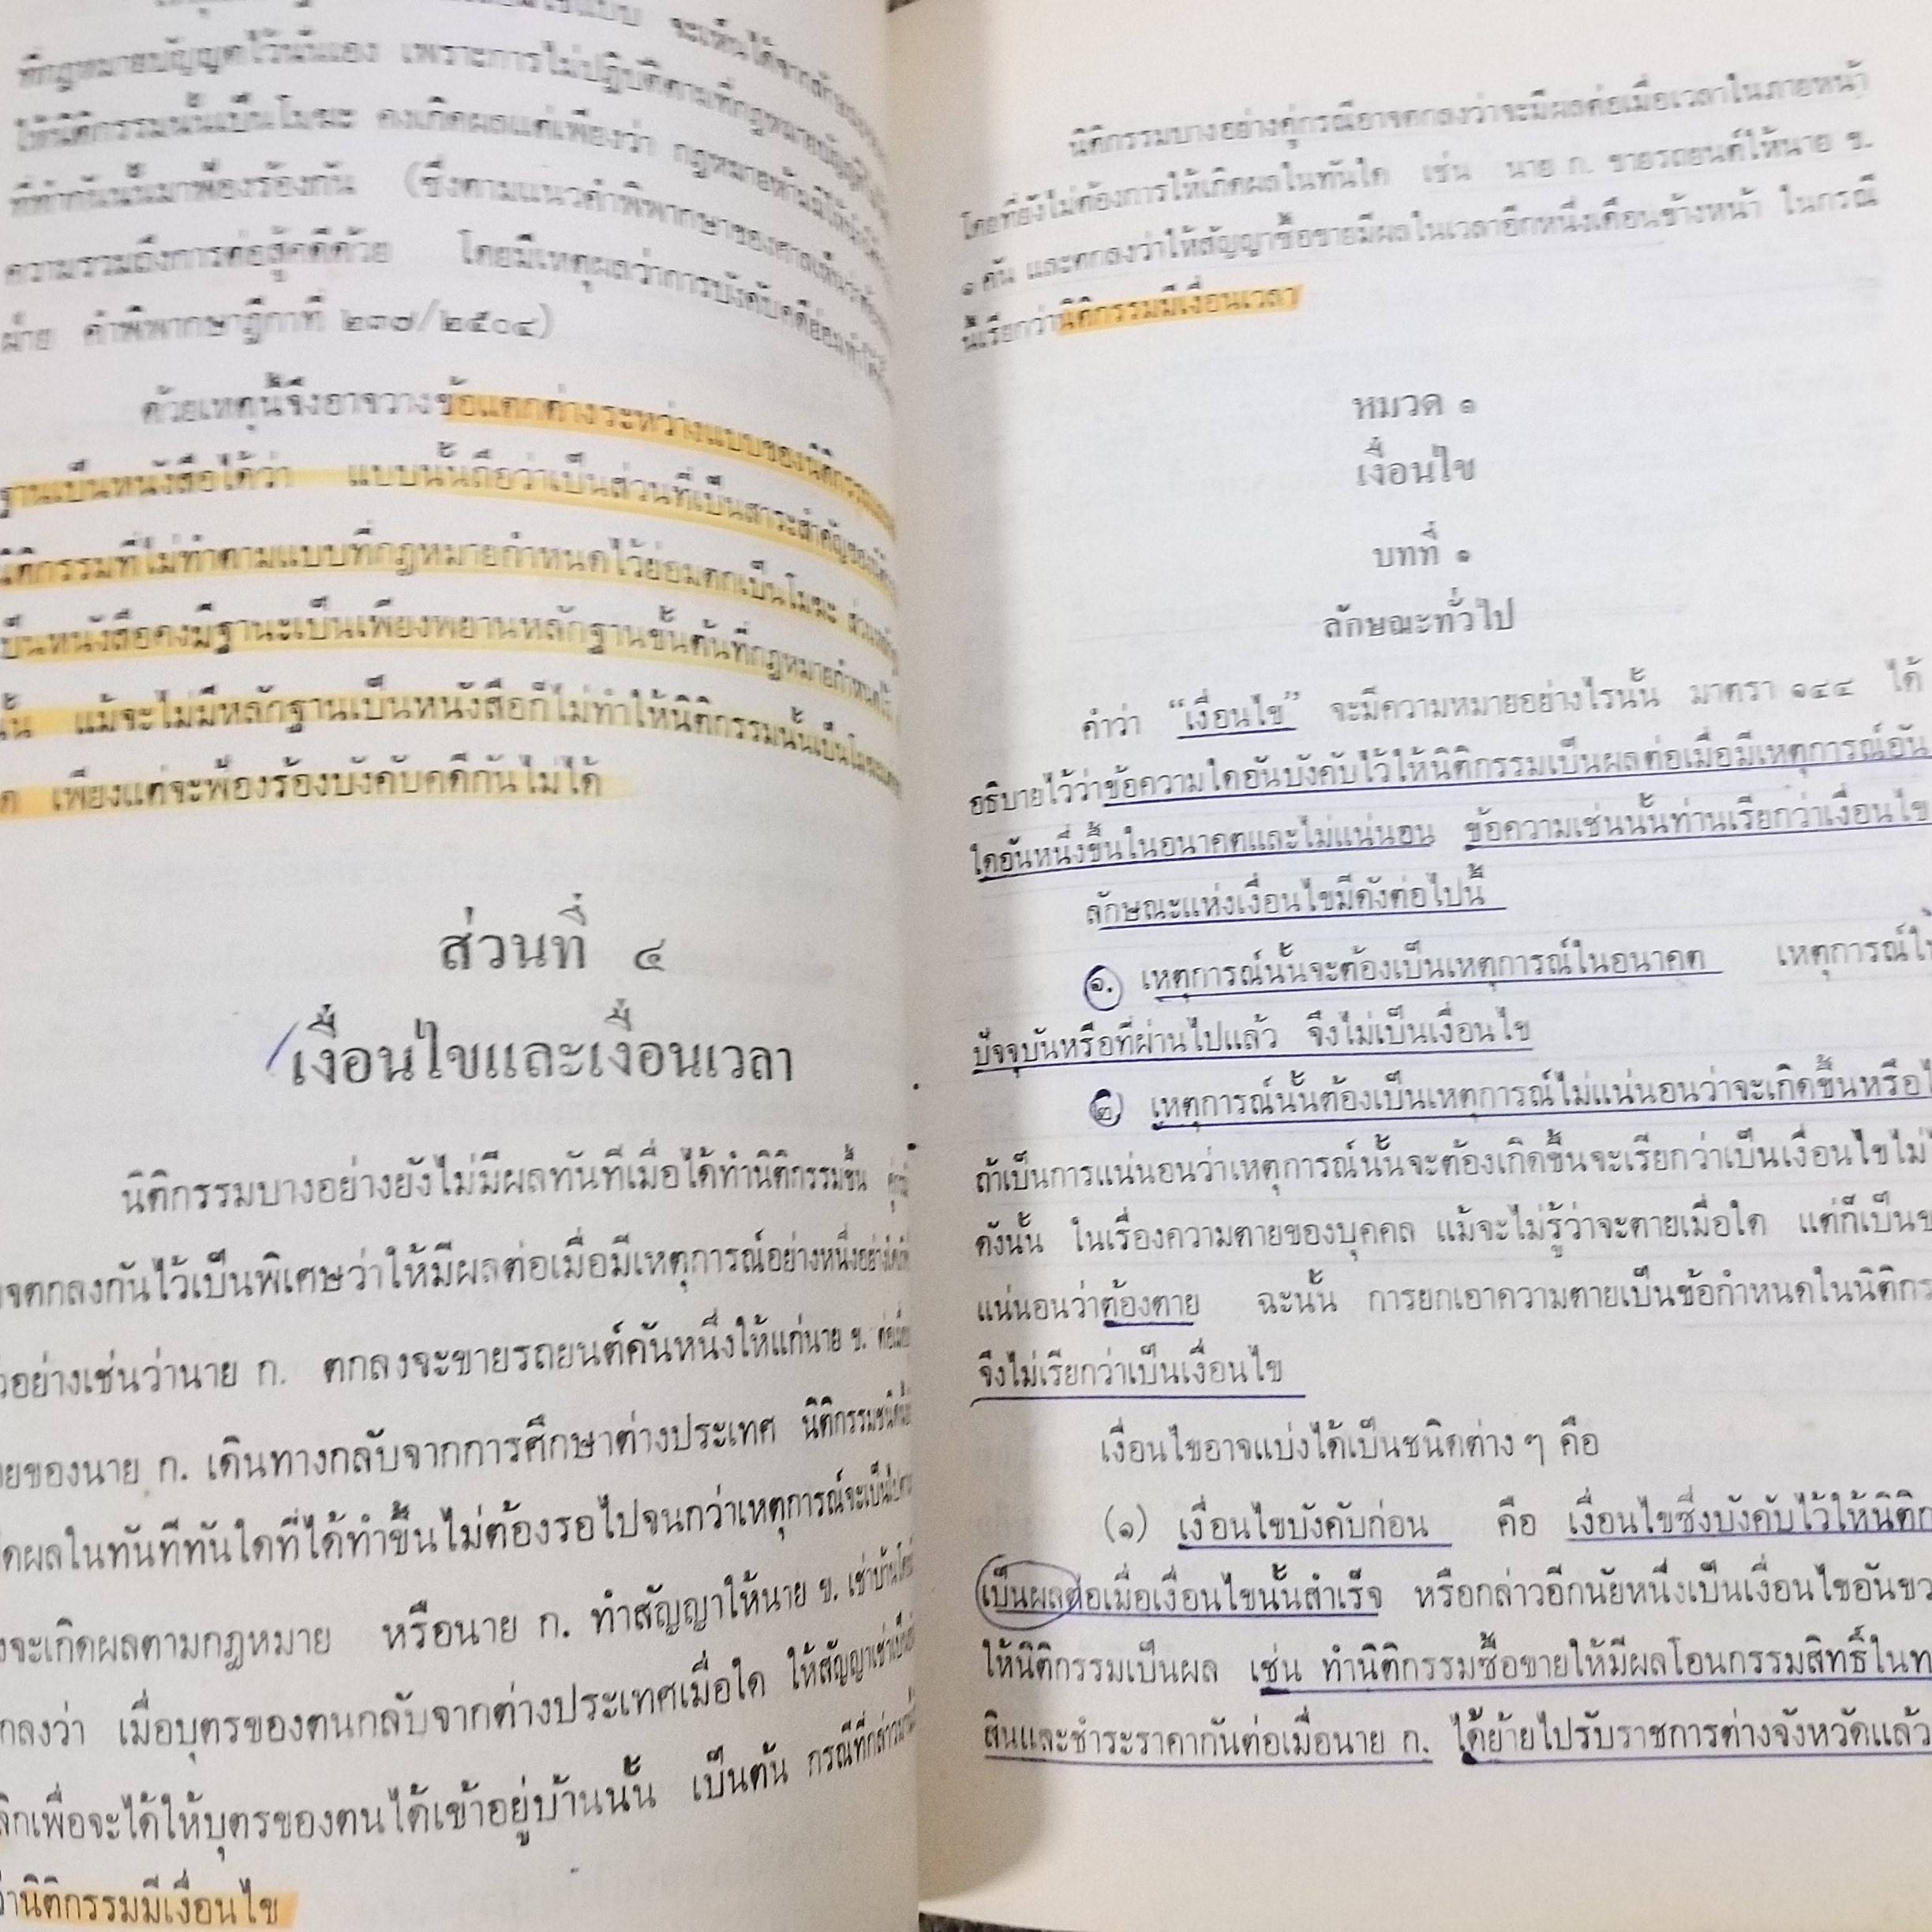 ที่กฎหมายบัญญัติไว้นั่นเอง เพราะการไม่ปฏิบัติตามที่กฎหมายบัญญัติ
ให้นิติกรรมนั้นเป็นโมฆะ คงเกิดผลแต่เพียงว่า กฎหมายห้ามมิให้
ที่ทำกันนั้นมาฟ้องร้องกัน (ซึ่งตามแนวคำพิพากษาของศาลเห็นว่า
ความรวมถึงการต่อสู้คดีด้วย โดยมีเหตุผลว่าการบังคับคดีย่อม
ฝ่าย คำพิพากษาฎีกาที่ ๒๓๗/๒๕๐๔)
ด้วยเหตุนี้จึงอาจวางข้อแตกต่างระหว่างแบบของนิติกรรม
ฐานเป็นหนังสือได้ว่า แบบนั้นถือว่าเป็นส่วนที่เป็นสาระสำคัญของ
นิติกรรมที่ไม่ทำตามแบบที่กฎหมายกำหนดไว้ย่อมตกเป็นโมฆะ
เป็นหนังสือคงมีฐานะเป็นเพียงพยานหลักฐานขั้นต้นที่กฎหมายกำหนดไว้
นั้น แม้จะไม่มีหลักฐานเป็นหนังสือก็ไม่ทำให้นิติกรรมนั้นเป็น
ด เพียงแต่จะฟ้องร้องบังคับคดีกันไม่ได้
ส่วนที่ ๔
เงื่อนไขและเงื่อนเวลา
นิติกรรมบางอย่างยังไม่มีผลทันทีเมื่อได้ทำนิติกรรมขึ้น
จตกลงกันไว้เป็นพิเศษว่าให้มีผลต่อเมื่อมีเหตุการณ์อย่างหนึ่ง
วอย่างเช่นว่านาย ก. ตกลงจะขายรถยนต์คันหนึ่งให้แก่นาย ข.
ยของนาย ก. เดินทางกลับจากการศึกษาต่างประเทศ
ดผลในทันทีทันใดที่ได้ทำขึ้นไม่ต้องรอไปจนกว่าเหตุการณ์จะเป็น
งจะเกิดผลตามกฎหมาย หรือนาย ก. ทำสัญญาให้นาย ข. เช่าบ้าน
กลงว่า เมื่อบุตรของตนกลับจากต่างประเทศเมื่อใด ให้สัญญาเช่า
ลิกเพื่อจะได้ให้บุตรของตนได้เข้าอยู่บ้านนั้น เป็นต้น กรณีที่กล่าว
ว่านิติกรรมมีเงื่อนไข
นิติกรรมบางอย่างคู่กรณีอาจตกลงว่าจะมีผลต่อเมื่อเวลาในภายหน้า
โดยที่ยังไม่ต้องการให้เกิดผลในทันใด เช่น นาย ก. ขายรถยนต์ให้นาย ข.
๑ คัน และตกลงว่าให้สัญญาซื้อขายมีผลในเวลาอีกหนึ่งเดือนข้างหน้า ในกรณี
นี้เรียกว่านิติกรรมมีเงื่อนเวลา
หมวด ๑
เงื่อนไข
บทที่ ๑
ลักษณะทั่วไป
คำว่า “เงื่อนไข” จะมีความหมายอย่างไรนั้น มาตรา ๑๔๔ ได้
อธิบายไว้ว่าข้อความใดอันบังคับไว้ให้นิติกรรมเป็นผลต่อเมื่อมีเหตุการณ์อัน
ใดอันหนึ่งขึ้นในอนาคตและไม่แน่นอน ข้อความเช่นนั้นท่านเรียกว่าเงื่อนไข
ลักษณะแห่งเงื่อนไขมีดังต่อไปนี้
๑. เหตุการณ์นั้นจะต้องเป็นเหตุการณ์ในอนาคต เหตุการณ์ใ
ปัจจุบันหรือที่ผ่านไปแล้ว จึงไม่เป็นเงื่อนไข
๒ เหตุการณ์นั้นต้องเป็นเหตุการณ์ไม่แน่นอนว่าจะเกิดขึ้นหรือไ
ถ้าเป็นการแน่นอนว่าเหตุการณ์นั้นจะต้องเกิดขึ้นจะเรียกว่าเป็นเงื่อนไขไม่
ดังนั้น ในเรื่องความตายของบุคคล แม้จะไม่รู้ว่าจะตายเมื่อใด แต่ก็เป็นข
แน่นอนว่าต้องตาย ฉะนั้น การยกเอาความตายเป็นข้อกำหนดในนิติกร
จึงไม่เรียกว่าเป็นเงื่อนไข
เงื่อนไขอาจแบ่งได้เป็นชนิดต่าง ๆ คือ
(๑) เงื่อนไขบังคับก่อน คือ เงื่อนไขซึ่งบังคับไว้ให้นิติก
เป็นผลต่อเมื่อเงื่อนไขนั้นสำเร็จ หรือกล่าวอีกนัยหนึ่งเป็นเงื่อนไขอันขว
ให้นิติกรรมเป็นผล เช่น ทำนิติกรรมซื้อขายให้มีผลโอนกรรมสิทธิ์ในท
สินและชำระราคากันต่อเมื่อนาย ก. ได้ย้ายไปรับราชการต่างจังหวัดแล้ว